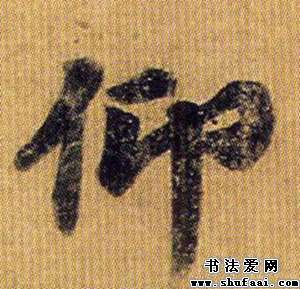 仰
书法爱网
www.shufaai.com